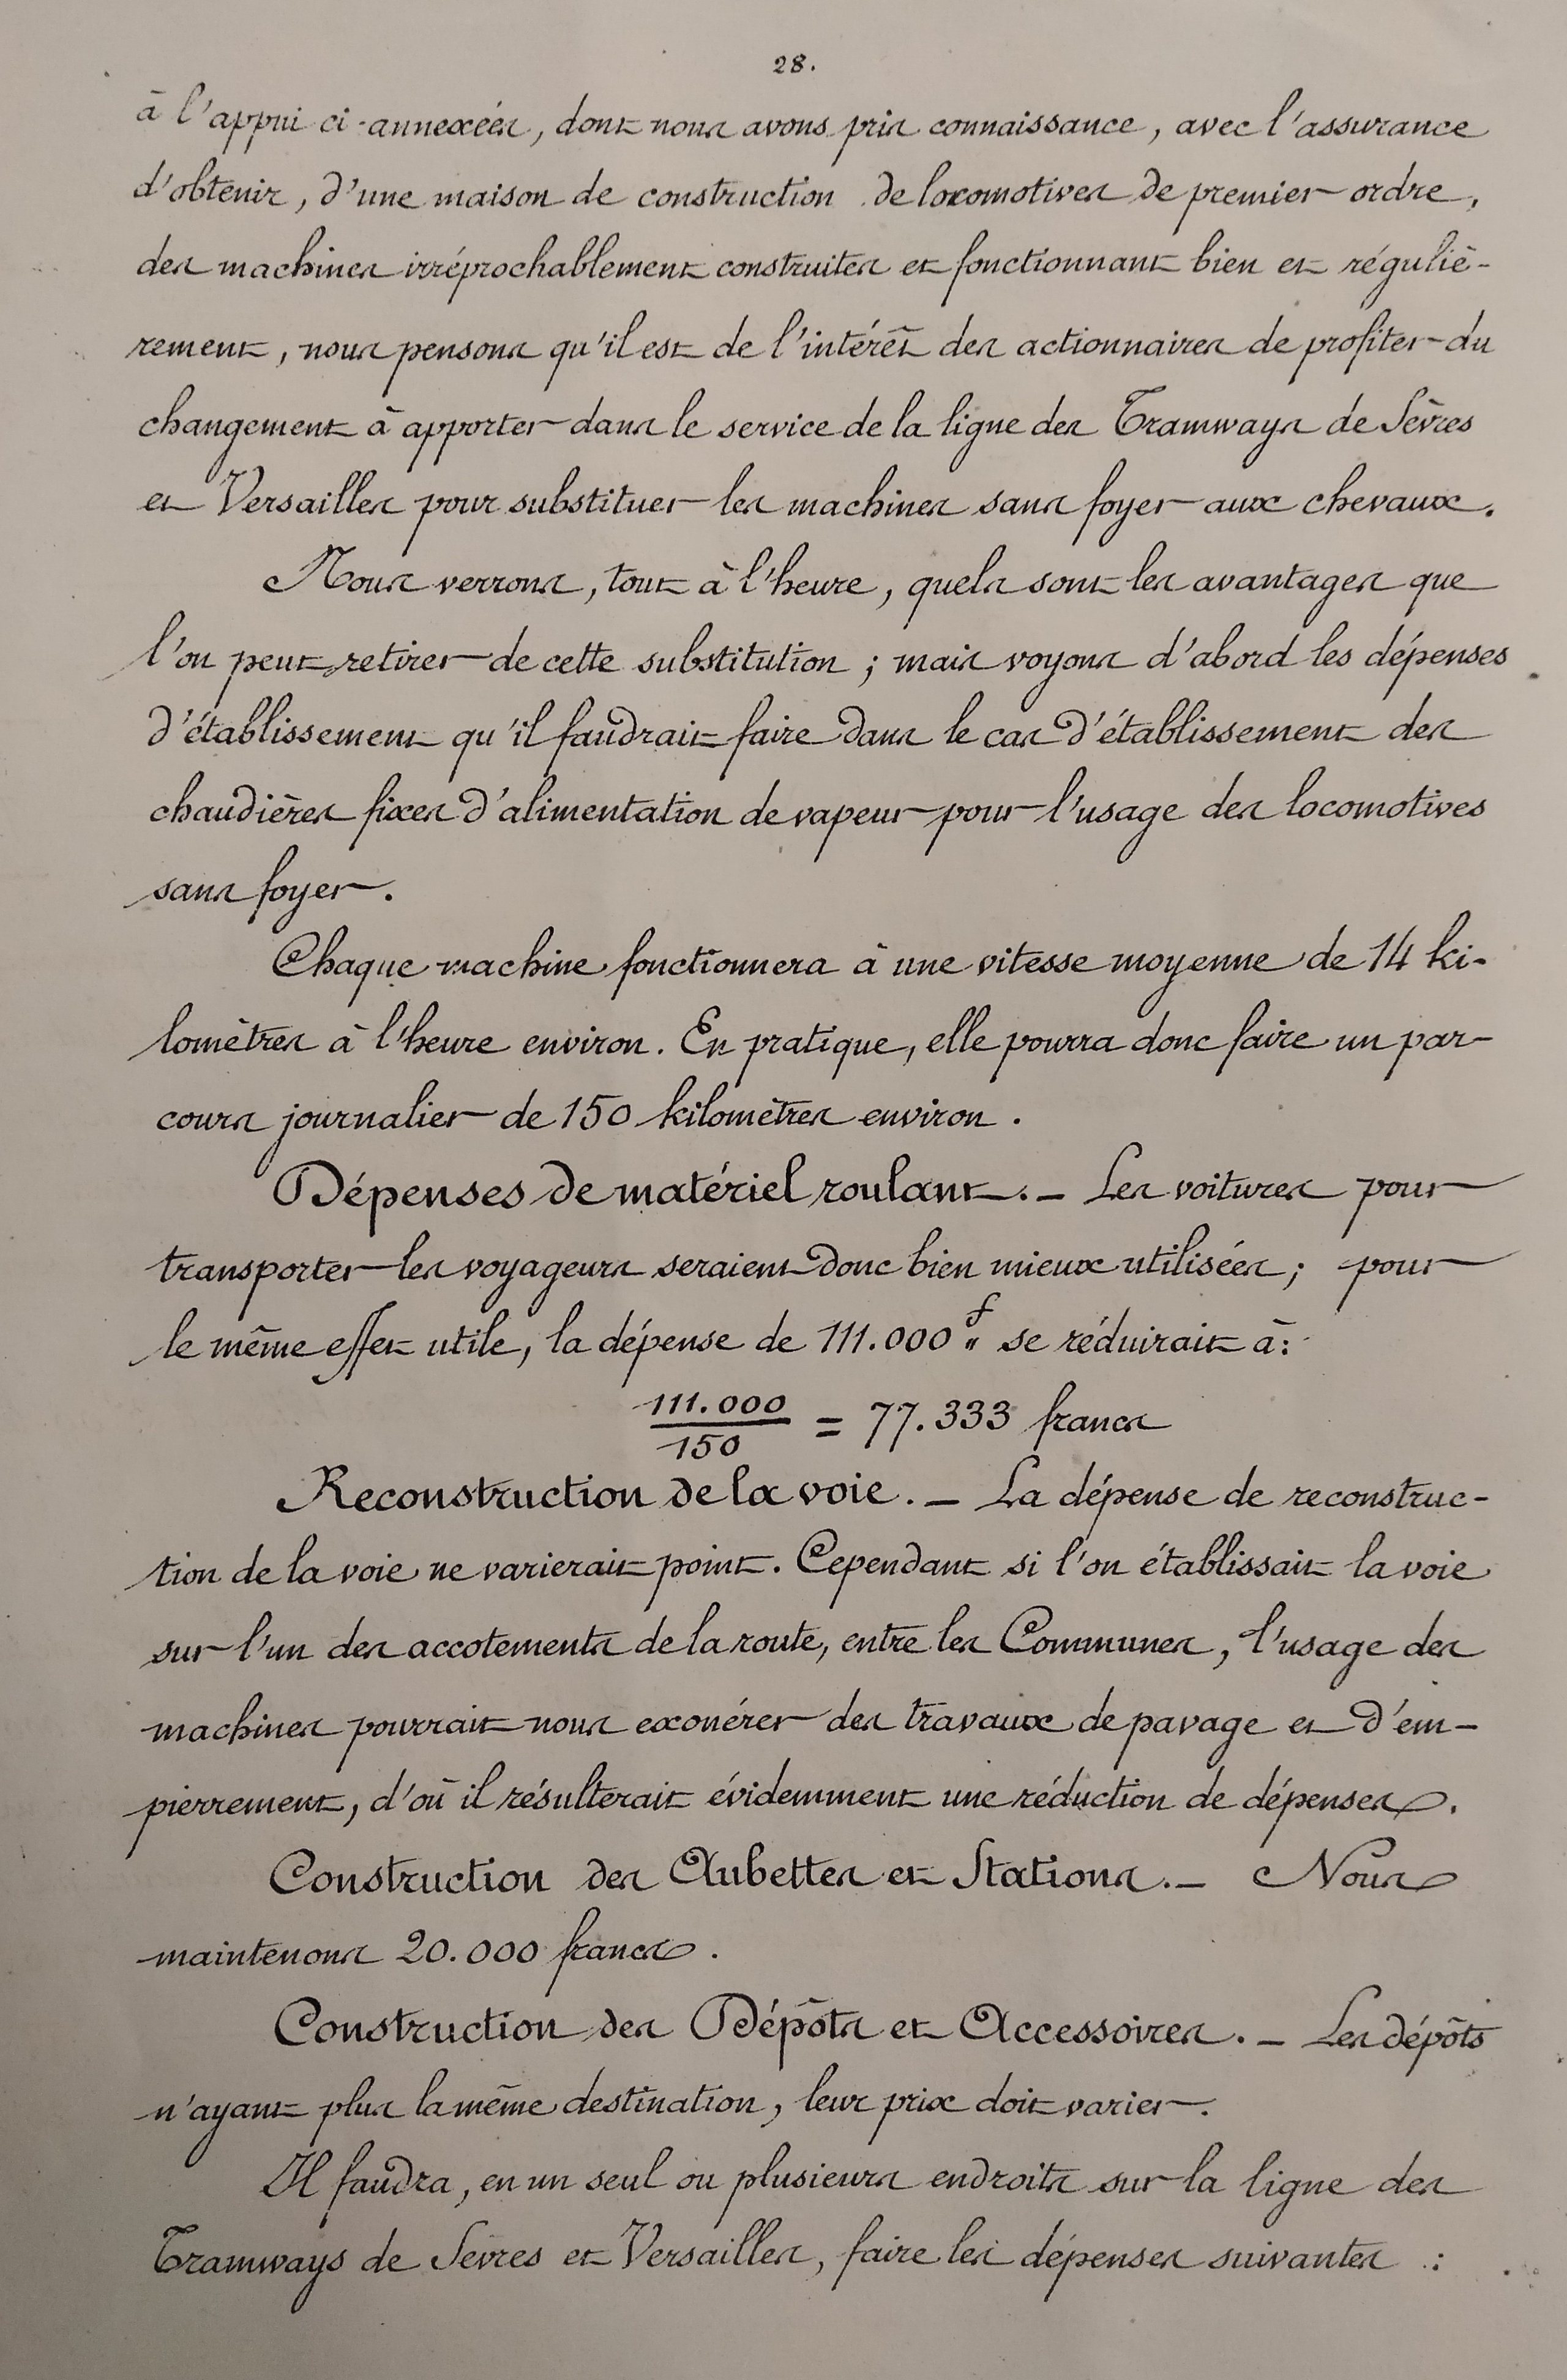 28.
à l'appui ci-annexées, dont nous avons pris connaissance, avec l'assurance
d'obtenir, d'une maison de construction de locomotives de premier ordre,
des machines irréprochablement construites et fonctionnant bien et réguliè-
rement, nous pensons qu'il est de l'intérêt des actionnaires de profiter du
changement à apporter dans le service de la ligne des Tramways de Sèvres
et Versailles pour substituer les machines sans foyer aux chevaux.
Nous verrons, tout à l'heure, quels sont les avantages que
l'on peut retirer de cette substitution ; mais voyons d'abord les dépenses
d'établissement qu'il faudrait faire dans le cas d'établissement des
chaudières fixes d'alimentation de vapeur pour l'usage des locomotives
sans foyer.
Chaque machine fonctionnera à une vitesse moyenne de 14 ki-
lomètres à l'heure environ. En pratique, elle pourra donc faire un par-
cours journalier de 150 kilomètres environ.
Dépenses de matériel roulant. — Les voitures pour
transporter les voyageurs seraient donc bien mieux utilisées ; pour
le même effet utile, la dépense de 111.000 f " se réduirait à :
111.000 / 150 = 77.333 francs
Reconstruction de la voie. — La dépense de reconstruc-
tion de la voie ne varierait point. Cependant si l'on établissait la voie
sur l'un des accotements de la route, entre les Communes, l'usage des
machines pourrait nous exonérer des travaux de pavage et d'em-
pierrement, d'où il résulterait évidemment une réduction de dépenses.
Construction des Aubettes et Stations. — Nous
maintenons 20.000 francs.
Construction des Dépôts et Accessoires. — Les dépôts
n'ayant plus la même destination, leur prix doit varier.
Il faudra, en un seul ou plusieurs endroits sur la ligne des
Tramways de Sèvres et Versailles, faire les dépenses suivantes :